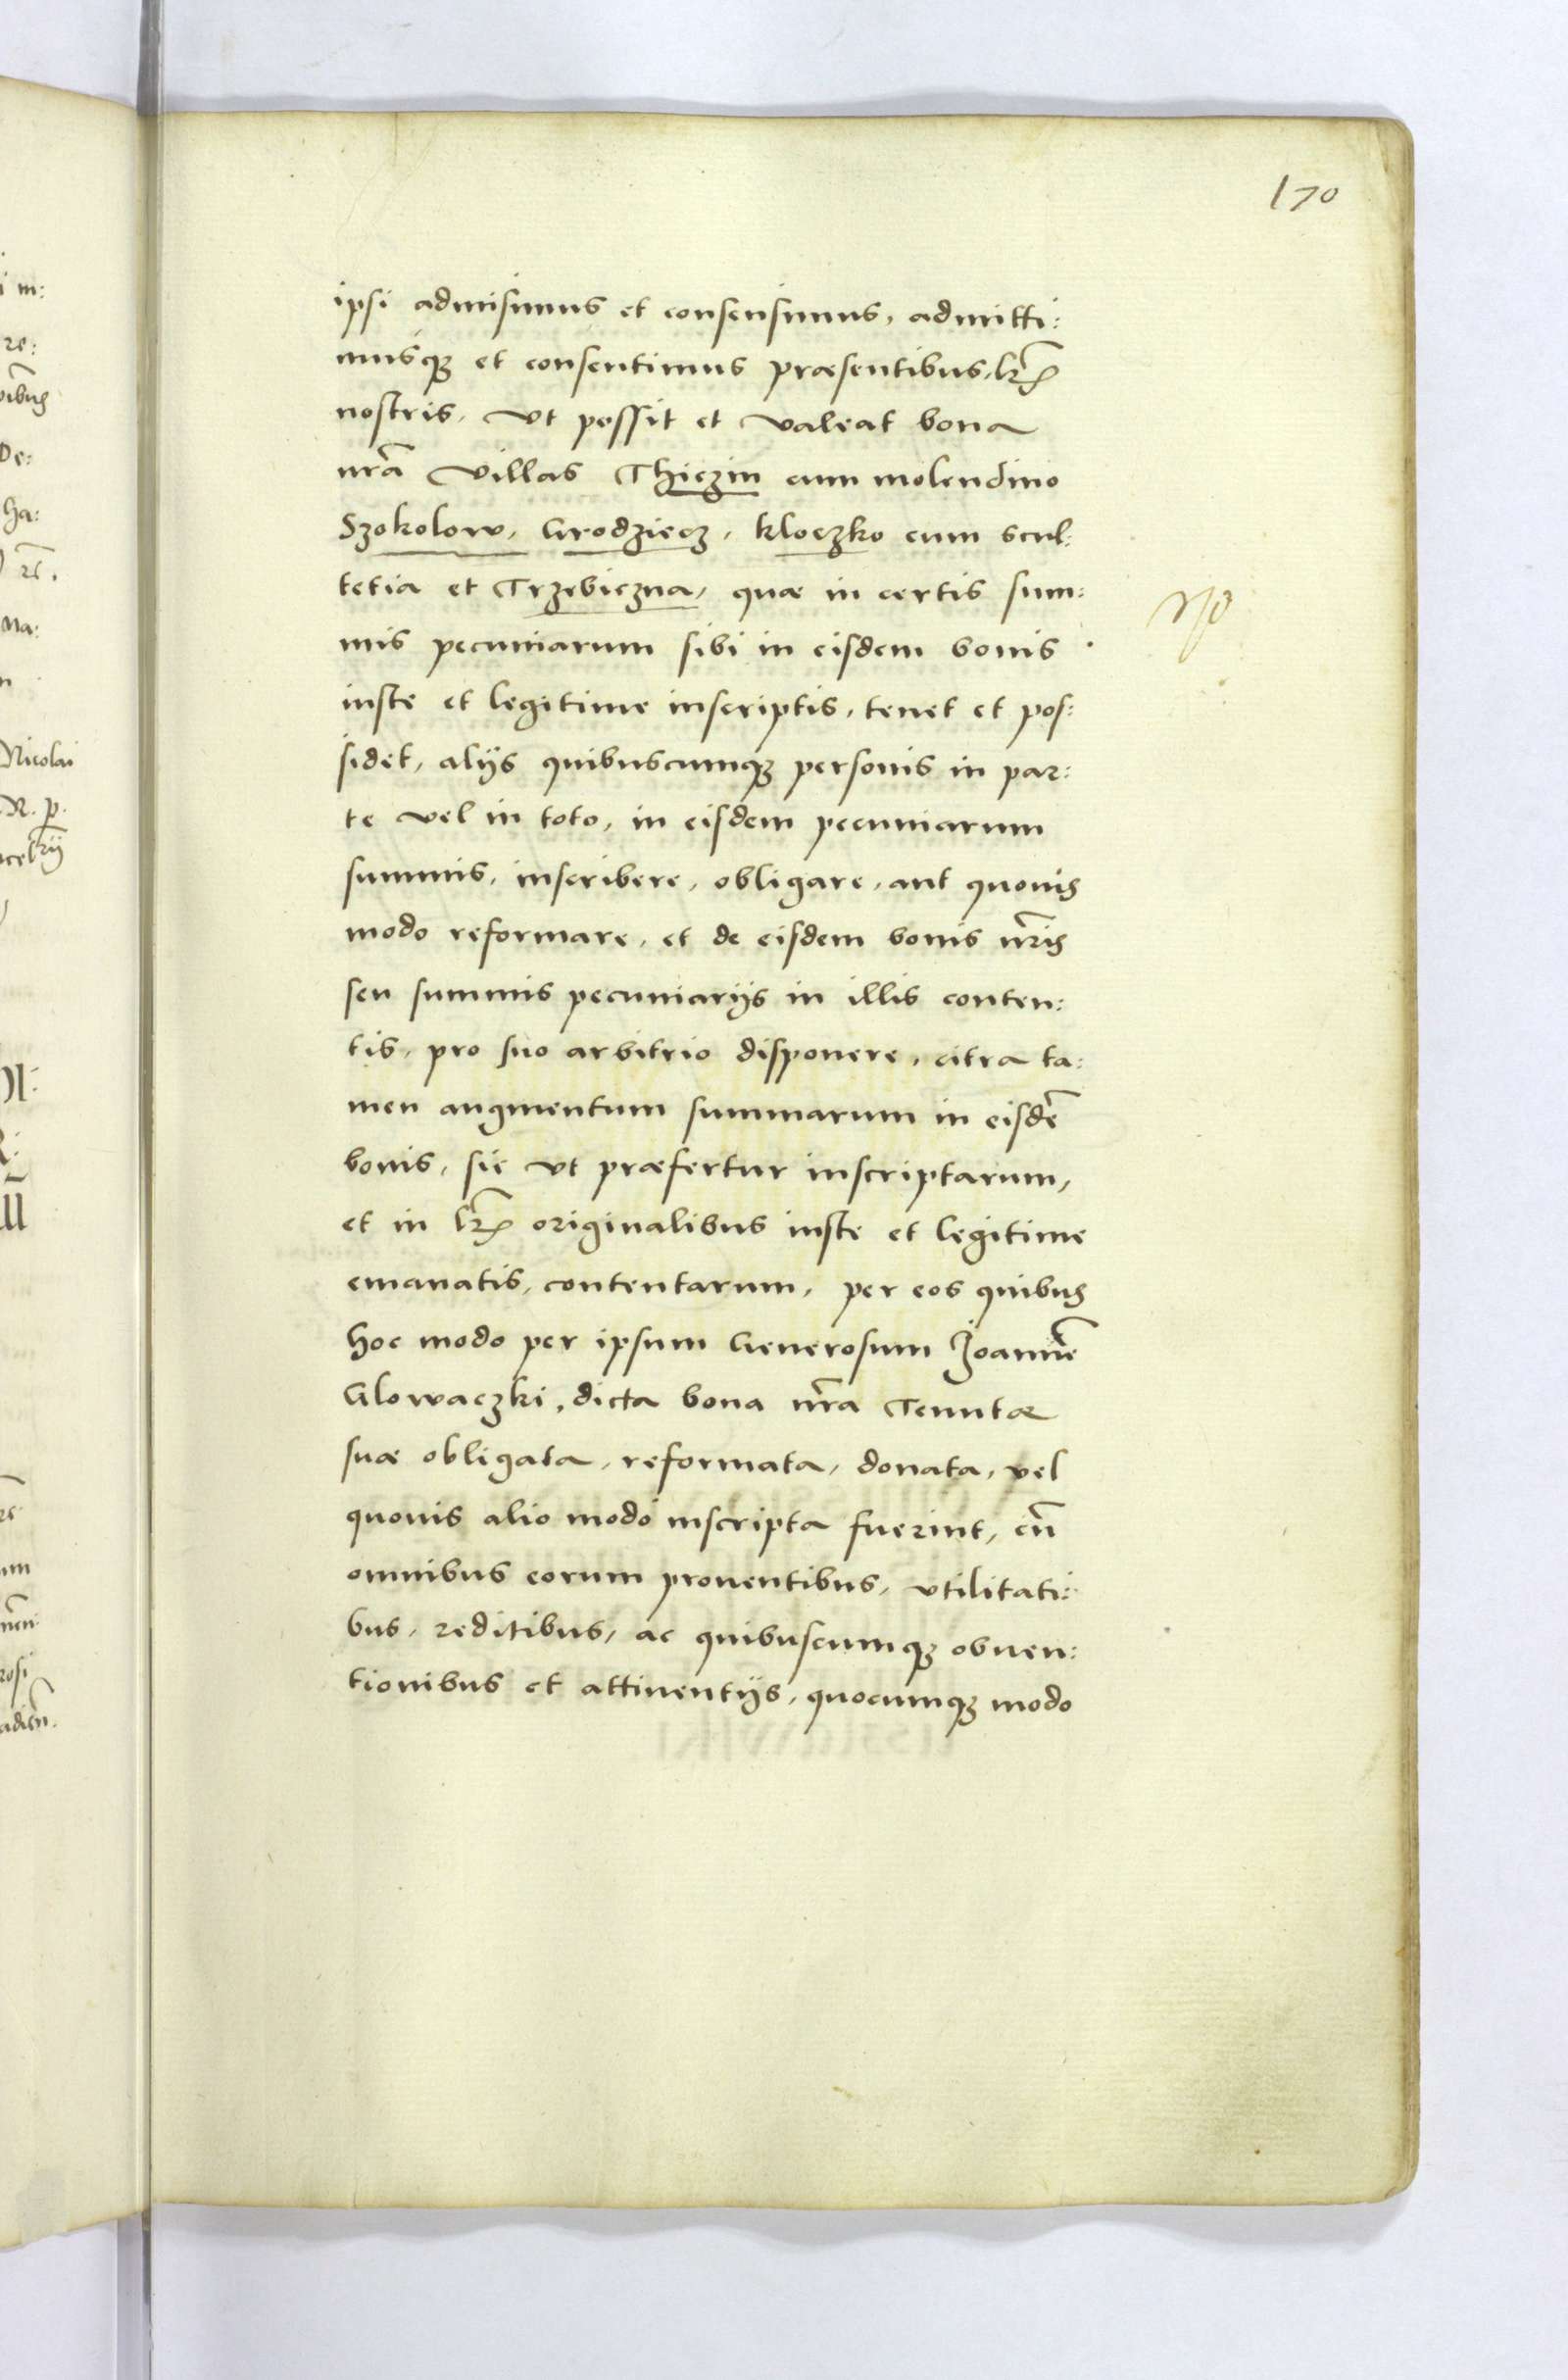 170
ipsi admisimus et consensimus, admitti:
musq3 et consentimus præsentibus, lr̃is
nostris, vt possit et valeat bona
nrã villas Thiczin cum molendino
Szokolow, Grodziecz, Kloczko cum scul:
tetia et Trzebiczna, quæ in certis sum:
mis pecuniarum sibi in eisdem bonis
iuste et legitime inscriptis, tenet et pos:
sidet, alijs quibuscumq3 personis in par:
te vel in toto, in eisdem pecuniarum
summis, inscribere, obligare, aut quouis
modo reformare, et de eisdem bonis nr̃is
seu summis pecuniarijs in illis conten:
tis, pro suo arbitrio disponere, citra ta:
men augmentum summarum in eisdẽ
bonis, sic vt præfertur inscriptarum,
et in lr̃is originalibus iuste et legitime
emanatis, contentarum, per eos quibus
hoc modo per ipsum Generosum Joannẽ
Glowaczki, dicta bona nr̃a Tenutæ
suæ obligata, reformata, donata, vel
quouis alio modo inscripta fuerint, cũ
omnibus eorum prouentibus, vtilitati:
bus, reditibus, ac quibuscumq3 obuen:
tionibus et attinentijs, quocumq3 modo